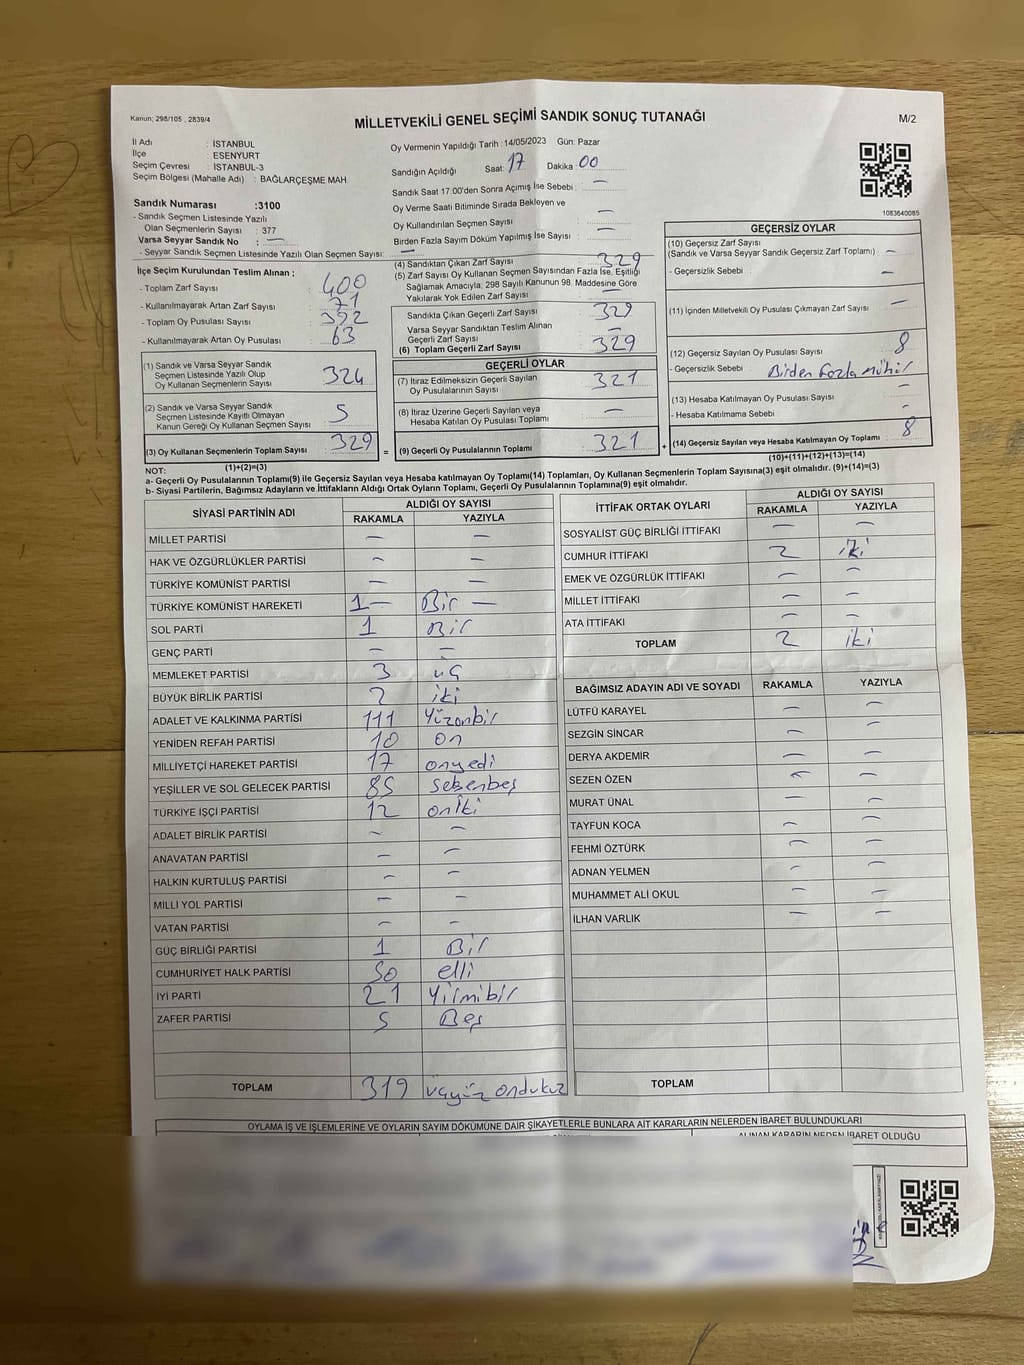 Kanun; 298/105 , 2839/4
MİLLETVEKİLİ GENEL SEÇİMİ SANDIK SONUÇ TUTANAĞI
M/2
İl Adı : İSTANBUL
İlçe : ESENYURT
Seçim Çevresi : İSTANBUL-3
Seçim Bölgesi (Mahalle Adı) : BAĞLARÇEŞME MAH.
Oy Vermenin Yapıldığı Tarih : 14/05/2023 Gün: Pazar
Sandığın Açıldığı Saat: 17 Dakika 00
Sandık Saat 17:00'den Sonra Açımış İse Sebebi : —
Oy Verme Saati Bitiminde Sırada Bekleyen ve
Oy Kullandırılan Seçmen Sayısı : —
Birden Fazla Sayım Döküm Yapılmış İse Sayısı : —
1083640085
Sandık Numarası :3100
- Sandık Seçmen Listesinde Yazılı
Olan Seçmenlerin Sayısı : 377
Varsa Seyyar Sandık No : —
- Seyyar Sandık Seçmen Listesinde Yazılı Olan Seçmen Sayısı: —
İlçe Seçim Kurulundan Teslim Alınan ;
- Toplam Zarf Sayısı : 400
- Kullanılmayarak Artan Zarf Sayısı : 71
- Toplam Oy Pusulası Sayısı : 392
- Kullanılmayarak Artan Oy Pusulası : 63
(1) Sandık ve Varsa Seyyar Sandık
Seçmen Listesinde Yazılı Olup
Oy Kullanan Seçmenlerin Sayısı : 324
(2) Sandık ve Varsa Seyyar Sandık
Seçmen Listesinde Kayıtlı Olmayan
Kanun Gereği Oy Kullanan Seçmen Sayısı : 5
(3) Oy Kullanan Seçmenlerin Toplam Sayısı : 329
(1)+(2)=(3)
(4) Sandıktan Çıkan Zarf Sayısı : 329
(5) Zarf Sayısı Oy Kullanan Seçmen Sayısından Fazla İse, Eşitliği
Sağlamak Amacıyla; 298 Sayılı Kanunun 98. Maddesine Göre
Yakılarak Yok Edilen Zarf Sayısı : —
Sandıkta Çıkan Geçerli Zarf Sayısı : 329
Varsa Seyyar Sandıktan Teslim Alınan
Geçerli Zarf Sayısı : —
(6) Toplam Geçerli Zarf Sayısı : 329
GEÇERLİ OYLAR
(7) İtiraz Edilmeksizin Geçerli Sayılan
Oy Pusulalarının Sayısı : 321
(8) İtiraz Üzerine Geçerli Sayılan veya
Hesaba Katılan Oy Pusulası Toplamı : —
= (9) Geçerli Oy Pusulalarının Toplamı : 321
GEÇERSİZ OYLAR
(10) Geçersiz Zarf Sayısı
(Sandık ve Varsa Seyyar Sandık Geçersiz Zarf Toplamı) : —
- Geçersizlik Sebebi : —
(11) İçinden Milletvekili Oy Pusulası Çıkmayan Zarf Sayısı : —
(12) Geçersiz Sayılan Oy Pusulası Sayısı : 8
- Geçersizlik Sebebi : Birden fazla mühür
(13) Hesaba Katılmayan Oy Pusulası Sayısı : —
- Hesaba Katılmama Sebebi : —
+ (14) Geçersiz Sayılan veya Hesaba Katılmayan Oy Toplamı : 8
(10)+(11)+(12)+(13)=(14)
NOT:
a- Geçerli Oy Pusulalarının Toplamı(9) ile Geçersiz Sayılan veya Hesaba katılmayan Oy Toplamı(14) Toplamları, Oy Kullanan Seçmenlerin Toplam Sayısına(3) eşit olmalıdır. (9)+(14)=(3)
b- Siyasi Partilerin, Bağımsız Adayların ve İttifakların Aldığı Ortak Oyların Toplamı, Geçerli Oy Pusulalarının Toplamına(9) eşit olmalıdır.
SİYASİ PARTİNİN ADI ALDIĞI OY SAYISI
RAKAMLA YAZIYLA
MİLLET PARTİSİ — —
HAK VE ÖZGÜRLÜKLER PARTİSİ — —
TÜRKİYE KOMÜNİST PARTİSİ — —
TÜRKİYE KOMÜNİST HAREKETİ 1 — Bir —
SOL PARTİ 1 Bir
GENÇ PARTİ — —
MEMLEKET PARTİSİ 3 üç
BÜYÜK BİRLİK PARTİSİ 2 iki
ADALET VE KALKINMA PARTİSİ 111 Yüzonbir
YENİDEN REFAH PARTİSİ 10 on
MİLLİYETÇİ HAREKET PARTİSİ 17 onyedi
YEŞİLLER VE SOL GELECEK PARTİSİ 85 seksenbeş
TÜRKİYE İŞÇİ PARTİSİ 12 oniki
ADALET BİRLİK PARTİSİ — —
ANAVATAN PARTİSİ — —
HALKIN KURTULUŞ PARTİSİ — —
MİLLİ YOL PARTİSİ — —
VATAN PARTİSİ — —
GÜÇ BİRLİĞİ PARTİSİ 1 Bir
CUMHURİYET HALK PARTİSİ 50 elli
İYİ PARTİ 21 Yirmibir
ZAFER PARTİSİ 5 Beş
TOPLAM 319 üçyüz ondokuz
İTTİFAK ORTAK OYLARI ALDIĞI OY SAYISI
RAKAMLA YAZIYLA
SOSYALİST GÜÇ BİRLİĞİ İTTİFAKI — —
CUMHUR İTTİFAKI 2 iki
EMEK VE ÖZGÜRLÜK İTTİFAKI — —
MİLLET İTTİFAKI — —
ATA İTTİFAKI — —
TOPLAM 2 iki
BAĞIMSIZ ADAYIN ADI VE SOYADI RAKAMLA YAZIYLA
LÜTFÜ KARAYEL — —
SEZGİN SİNCAR — —
DERYA AKDEMİR — —
SEZEN ÖZEN — —
MURAT ÜNAL — —
TAYFUN KOCA — —
FEHMİ ÖZTÜRK — —
ADNAN YELMEN — —
MUHAMMET ALİ OKUL — —
İLHAN VARLIK — —
TOPLAM
OYLAMA İŞ VE İŞLEMLERİNE VE OYLARIN SAYIM DÖKÜMÜNE DAİR ŞİKAYETLERLE BUNLARA AİT KARARLARIN NELERDEN İBARET BULUNDUKLARI
ALINAN KARARIN NEDEN İBARET OLDUĞU